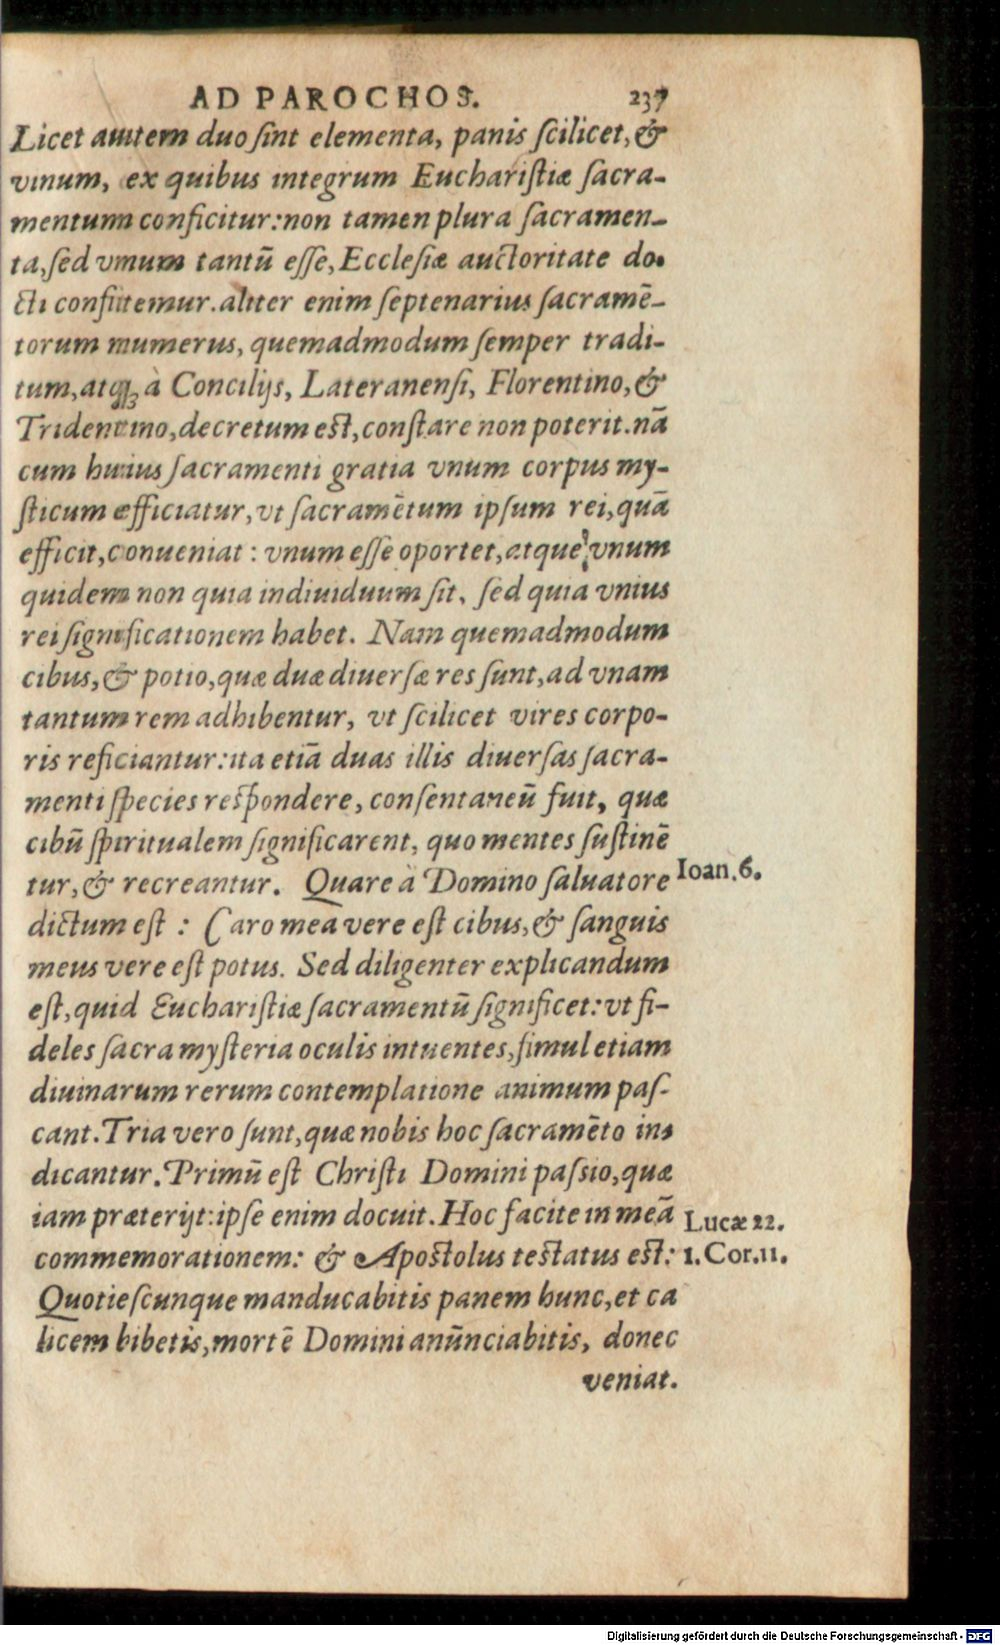 AD PAROCHOS. 237
Licet autem duo sint elementa, panis scilicet, &
vinum, ex quibus integrum Eucharistiæ sacra-
mentum conficitur: non tamen plura sacramen-
ta, sed vnum tantū esse, Ecclesiæ auctoritate do-
cti confitemur. aliter enim septenarius sacramē-
torum numerus, quemadmodum semper tradi-
tum, atq; à Concilijs, Lateranensi, Florentino, &
Tridentino, decretum est, constare non poterit. nā
cum huius sacramenti gratia vnum corpus my-
sticum efficiatur, vt sacramētum ipsum rei, quā
efficit, conueniat : vnum esse oportet, atque vnum
quidem non quia indiuiduum sit, sed quia vnius
rei significationem habet. Nam quemadmodum
cibus, & potio, quæ duæ diuersæ res sunt, ad vnam
tantum rem adhibentur, vt scilicet vires corpo-
ris reficiantur: ita etiā duas illis diuersas sacra-
menti species respondere, consentaneū fuit, quæ
cibū spiritualem significarent, quo mentes sustinē
tur, & recreantur. Quare à Domino saluatore
Ioan. 6.
dictum est : Caro mea vere est cibus, & sanguis
meus vere est potus. Sed diligenter explicandum
est, quid Eucharistiæ sacramentū significet: vt fi-
deles sacra mysteria oculis intuentes, simul etiam
diuinarum rerum contemplatione animum pas-
cant. Tria vero sunt, quæ nobis hoc sacramēto in-
dicantur. Primū est Christi Domini passio, quæ
iam præterijt: ipse enim docuit. Hoc facite in meā
Lucæ 22.
commemorationem: & Apostolus testatus est:
1. Cor. 11.
Quotiescunque manducabitis panem hunc, et ca
licem bibetis, mortē Domini anūnciabitis, donec
veniat.
Digitalisierung gefördert durch die Deutsche Forschungsgemeinschaft - DFG